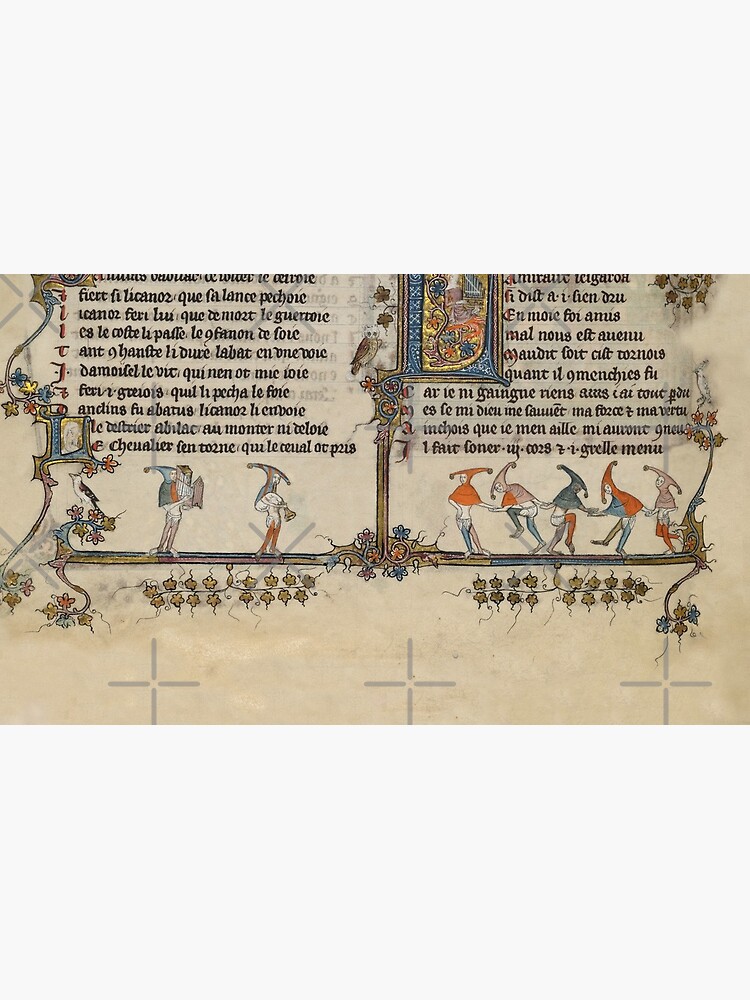 fiert si licanor · que sa lance pechoie
licanor feri lui que de mort le guerroie
les le coste li passe le 9fanon de soie
Tant 9 hanste li dure labat en vne voie
damoisel le vit · qui nen ot mie ioie
feri · i · grejois quil li pecha le foie
danclins fu abatus licanor li enuoie
le destrier abilac au monter ni deloie
LE Chevalier sen torne · qui le ceual ot pris
amiraut
si dist a · i · sien dru
En moie foi anus
mal nous est auenu
Maudit soit cist tornois
quant il 9menchies fu
Car ie ni gaaigne riens ains i ai tout
mes se mi dieu me sauuent ma force & ma vertu
ainchois que ie men aille mi auront
Il fait soner · iij · cors & · i · grelle menu